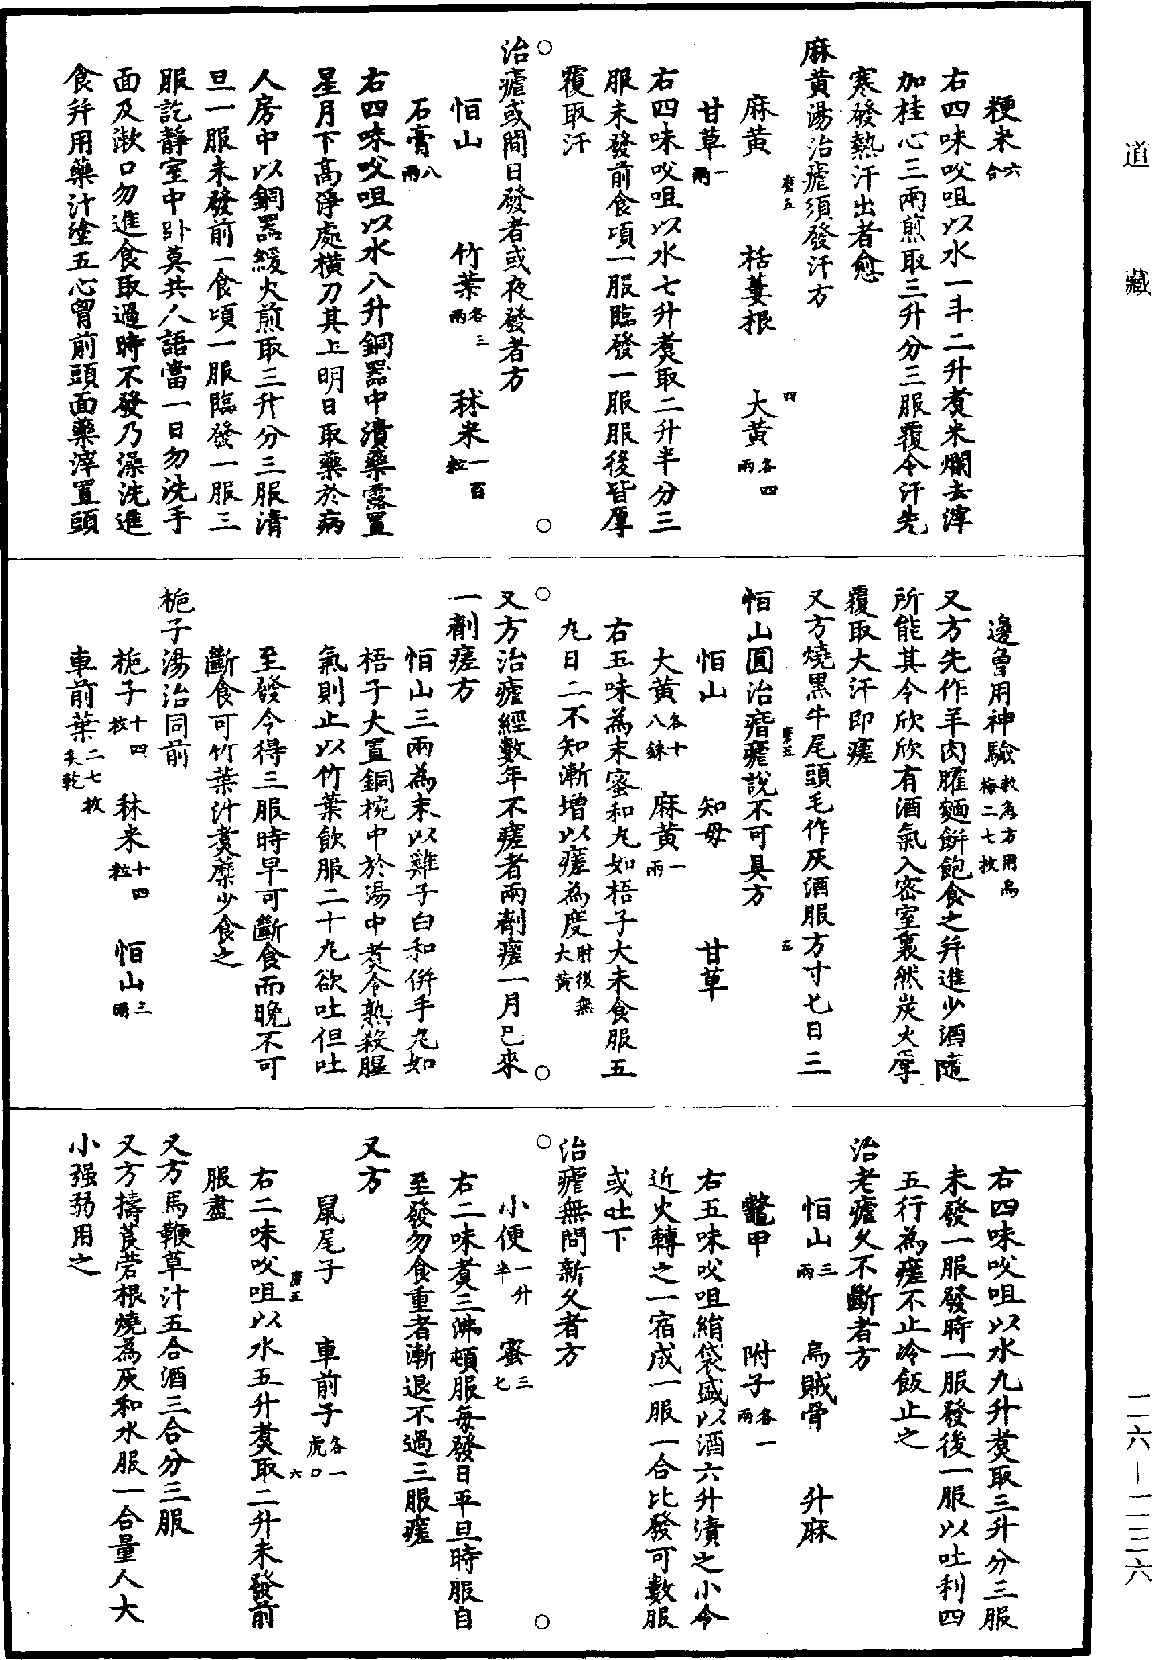 道藏
粳米六合
右四味㕮咀以水一斗二升煑米爛去滓
加桂心三兩煎取三升分三服覆令汗先
寒發熱汗出者愈
麻黄湯治瘧須發汗方
唐五 四
麻黄 栝蔞根 大黄各四兩
甘草一兩
右四味㕮咀以水七升煑取二升半分三
服未發前食頃一服臨發一服服後皆厚
覆取汗
治瘧或間日發者或夜發者方
恒山 竹葉各三兩 秫米一百粒
石膏八兩
右四味㕮咀以水八升銅器中漬藥露置
星月下高淨處横刀其上明日取藥於病
人房中以銅器緩火煎取三升分三服清
旦一服未發前一食頃一服臨發一服三
服訖靜室中卧莫共人語當一日勿洗手
面及漱口勿進食取過時不發乃澡洗進
食并用藥汁塗五心胷前頭面藥滓置頭
邊曾用神驗救急方用烏梅二七枚
又方先作羊肉臛麵餅飽食之并進少酒隨
所能其令欣欣有酒氣入密室裏然炭火厚
覆取大汗即瘥
又方燒黒牛尾頭毛作灰酒服方寸匕日三
唐五 五
恒山圓治㾬瘧説不可具方
恒山 知母 甘草
大黄各十八銖 麻黄一兩
右五味為末蜜和丸如梧子大未食服五
丸日二不知漸增以瘥為度肘後無大黄
又方治瘧經數年不瘥者兩劑瘥一月已來
一劑瘥方
恒山三兩為末以雞子白和併手丸如
梧子大置銅椀中於湯中煑令熟殺腥
氣則止以竹葉飲服二十丸欲吐但吐
至發令得三服時早可斷食而晚不可
斷食可竹葉汁煑糜少食之
梔子湯治同前
梔子十四粒 秫米十四粒 恒山三兩
車前葉二七枚炙乾
右四味㕮咀以水九升煑取三升分三服
未發一服發時一服發後一服以吐利四
五行為瘥不止冷飯止之
治老瘧久不斷者方
恒山三兩 烏賊骨 升麻
鼈甲 附子各一兩
右五味㕮咀絹袋盛以酒六升漬之小令
近火轉之一宿成一服一合比發可數服
或吐下
治瘧無問新久者方
小便一升半 蜜三匕
右二味煑三沸頓服每發日平旦時服自
至發勿食重者漸退不過三服瘥
又方
鼠尾子 車前子各一虎口
唐五 六
右二味㕮咀以水五升煑取二升未發前
服盡
又方馬鞭草汁五合酒三合分三服
又方擣莨菪根燒為灰和水服一合量人大
小强弱用之
二六—一三六